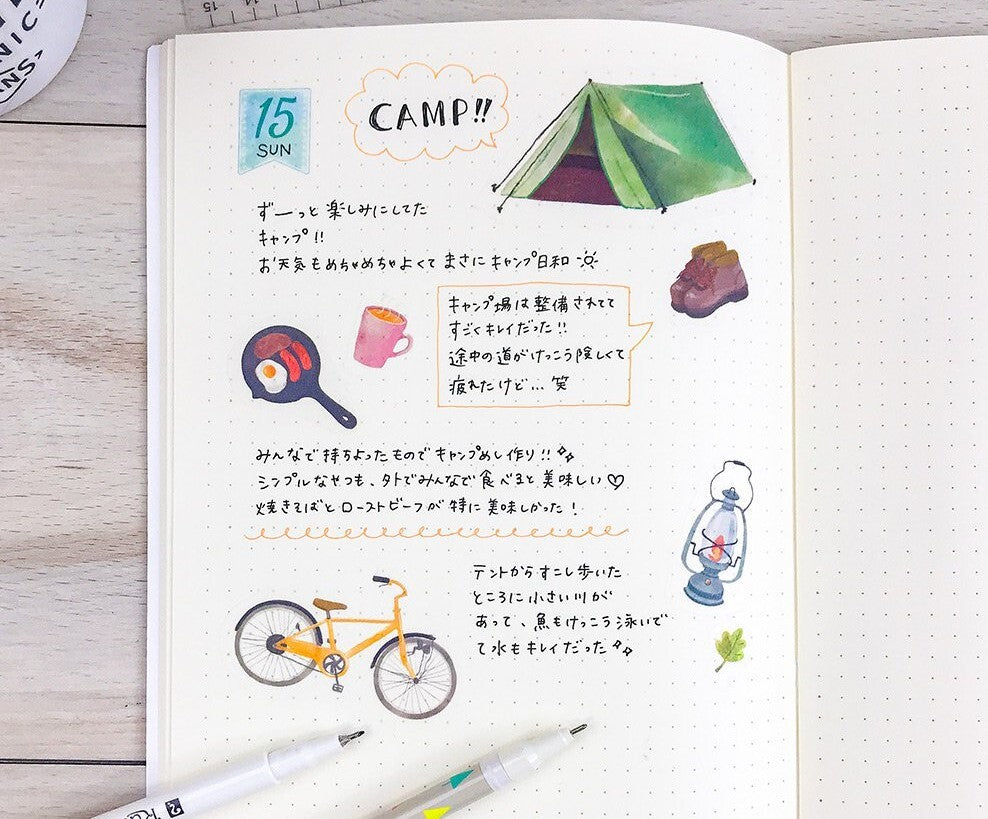 15
SUN
CAMP!!
ずーっと楽しみにしてた
キャンプ!!
お天気もめちゃめちゃよくてまさにキャンプ日和
キャンプ場は整備されてて
すごくキレイだった!!
途中の道がけっこう険しくて
疲れたけど... 笑
みんなで持ちよったものでキャンプめし作り!!
シンプルなやつも、外でみんなで食べると美味しい♡
焼きそばとローストビーフが特に美味しかった!
テントからすこし歩いた
ところに小さい川が
あって、魚もけっこう泳いで
て水もキレイだった
15